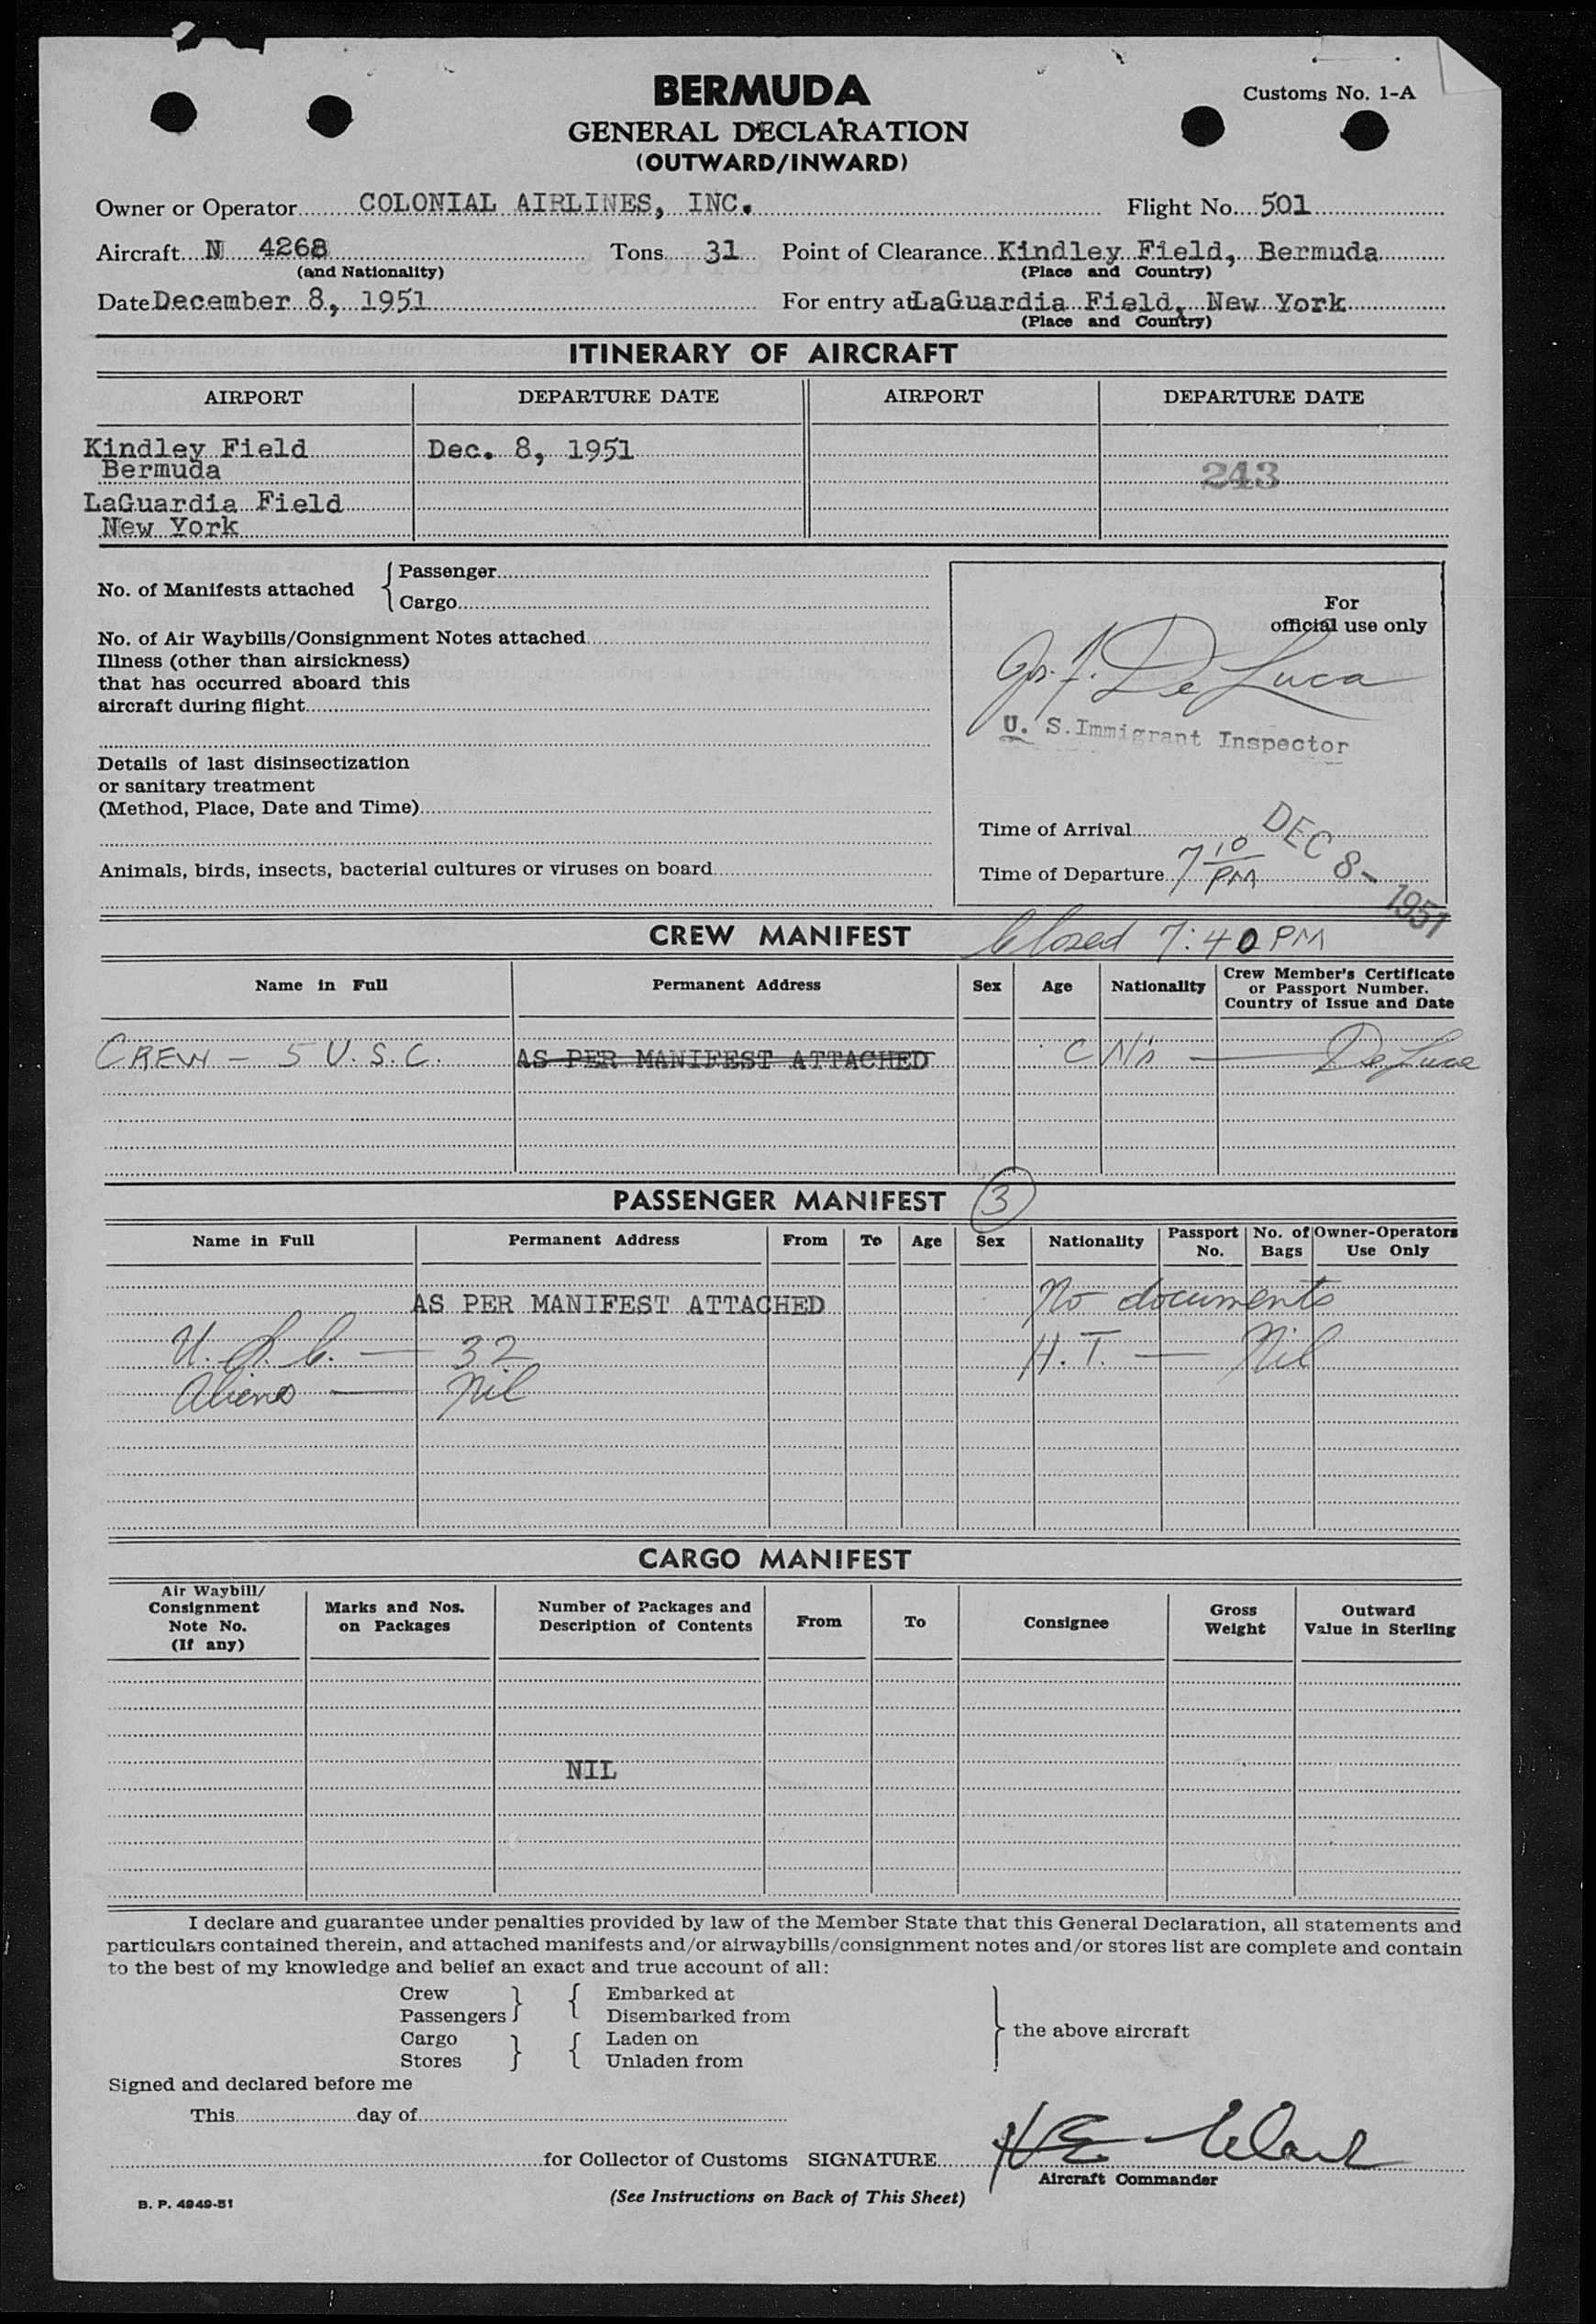 BERMUDA
Customs No. 1-A
GENERAL DECLARATION
(OUTWARD/INWARD)
Owner or Operator COLONIAL AIRLINES, INC. Flight No. 501
Aircraft N 4268 Tons 31 Point of Clearance Kindley Field, Bermuda
(and Nationality) (Place and Country)
Date December 8, 1951 For entry at LaGuardia Field, New York
(Place and Country)
ITINERARY OF AIRCRAFT
AIRPORT DEPARTURE DATE AIRPORT DEPARTURE DATE
Kindley Field Dec. 8, 1951
Bermuda
243
LaGuardia Field
New York
No. of Manifests attached { Passenger
Cargo
No. of Air Waybills/Consignment Notes attached
Illness (other than airsickness)
that has occurred aboard this
aircraft during flight
Details of last disinsectization
or sanitary treatment
(Method, Place, Date and Time)
Animals, birds, insects, bacterial cultures or viruses on board
For
official use only
Jos. J. De Luca
U. S. Immigrant Inspector
Time of Arrival
Time of Departure 7 10 PM
DEC 8- 1951
CREW MANIFEST Closed 7:40 PM
Name in Full Permanent Address Sex Age Nationality Crew Member's Certificate
or Passport Number.
Country of Issue and Date
CREW - 5 U.S.C. AS PER MANIFEST ATTACHED C N/s — De Luca
PASSENGER MANIFEST 3
Name in Full Permanent Address From To Age Sex Nationality Passport No. No. of Bags Owner-Operators Use Only
AS PER MANIFEST ATTACHED No documents
U.S.C. — 32 H.T. — Nil
Aliens — Nil
CARGO MANIFEST
Air Waybill/
Consignment
Note No.
(If any)
Marks and Nos.
on Packages
Number of Packages and
Description of Contents
From
To
Consignee
Gross
Weight
Outward
Value in Sterling
NIL
I declare and guarantee under penalties provided by law of the Member State that this General Declaration, all statements and
particulars contained therein, and attached manifests and/or airwaybills/consignment notes and/or stores list are complete and contain
to the best of my knowledge and belief an exact and true account of all:
Crew } { Embarked at
Passengers Disembarked from
Cargo } { Laden on } the above aircraft
Stores Unladen from
Signed and declared before me
This day of
for Collector of Customs SIGNATURE H E Clark
Aircraft Commander
B. P. 4949-51
(See Instructions on Back of This Sheet)